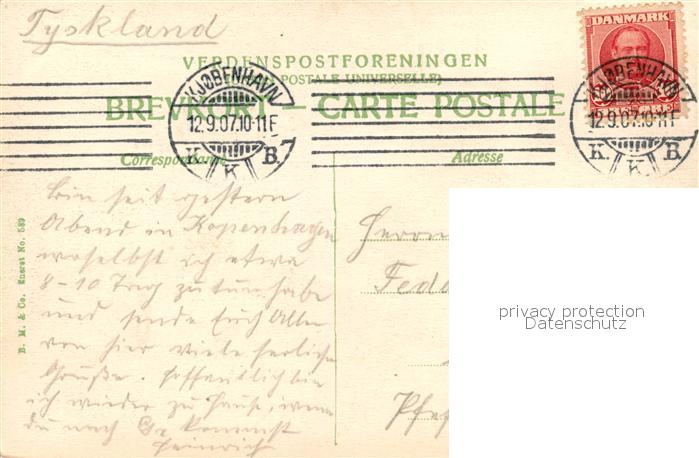 Tyskland
VERDENSPOSTFORENINGEN
POSTALE UNIVERSELLE)
BREVKORT — CARTE POSTALE
DANMARK
KJØBENHAVN
12.9.07.10-11F
K. K. B. 7
KJØBENHAVN
12.9.07.10-11F
K. K. B.
Adresse
B. M. & Co. Eneret No. 589
Bin seit gestern
Abend in Kopenhagen
woselbst ich etwa
8-10 Tag zu tun habe
und sende Euch Allen
von hier viele herzliche
Grüße. Hoffentlich bin
ich wieder zu Hause, wenn
du nach kommst
Heinrich
Herrn
privacy protection
Datenschutz